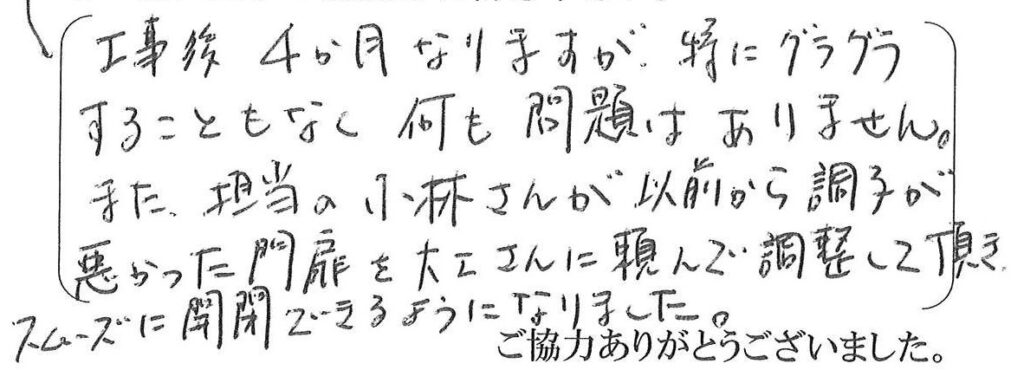 工事後 4か月なりますが、特にグラグラ
することもなく 何も問題はありません。
また、担当の小林さんが以前から調子が
悪かった門扉を大工さんに頼んで調整して頂き
スムーズに開閉できるようになりました。
ご協力ありがとうございました。